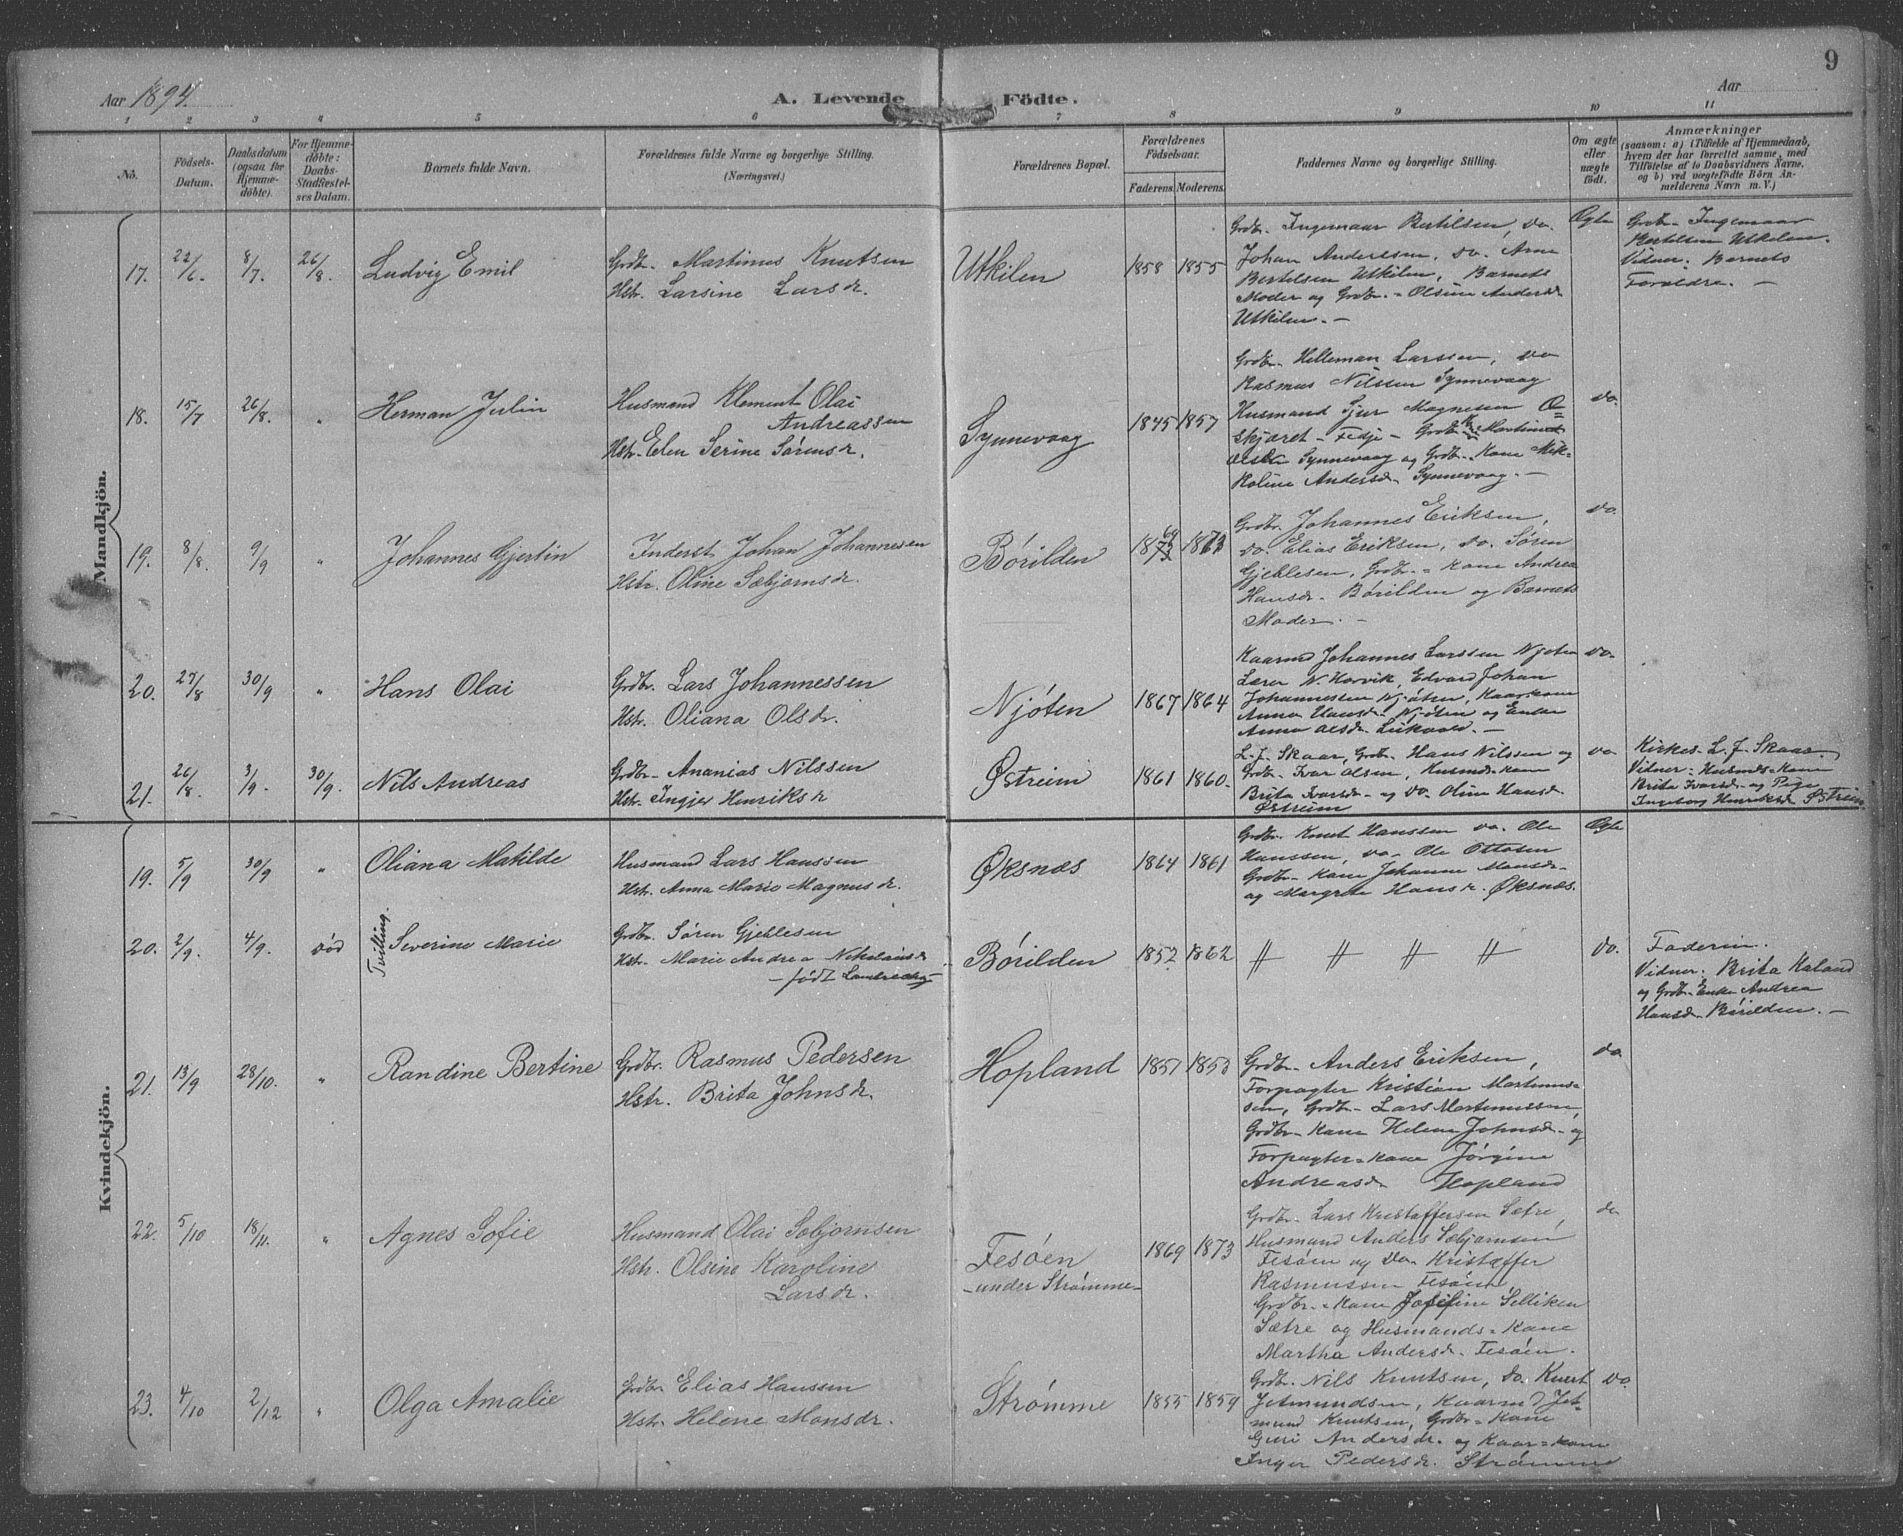 9
Aar 1894.
A. Levende Födte.
Aar
1 2 3 4 5 6 7 8 9 10 11
No.
Födsels-Datum.
Daabsdatum (ogsaa for Hjemme-döbte).
For Hjemme-döbte: Daabs-Stadfæstel-ses Datum.
Barnets fulde Navn.
Forældrenes fulde Navne og borgerlige Stilling.
(Næringsvei.)
Forældrenes Bopæl.
Forældrenes Födselsaar.
Faderens. Moderens.
Faddernes Navne og borgerlige Stilling.
Om ægte eller uægte födt.
Anmærkninger
(saasom: a) (Tilfælde af Hjemmedaab,
hvem der har forrettet samme, med
Tilföielse af to Daabsvidners Navne.
og b) ved uægtefödte Börn An-
melderens Navn m. V.)
Mandkjön.
17. 22/6 8/7. 26/8. Ludvig Emil
Grdbr. Martinus Knutsen
Hst. Larsine Larsdr.
Utkilen 1858 1855
Grdbr. Ingemaar Bertilsen, do.
Johan Andersen, do. Arne
Bertelsen Utkilen, Barnets
Moder og Grdbr. Olsine Andersd.
Utkilen. —
Ægte
Grdbr. Ingemaar
Bertilsen Utkilen.
Vidner: Barnets
Forældre. —
18. 15/7 26/8. " Herman Julin
Husmand Klement Olai
Andreassen
Hstr. Elen Serine Sørensdr.
Synnevaag 1845 1857
Grdbr. Helleman Larssen, do
Rasmus Nilssen Synnevaag
Husmand Sjur Magnesen
skjæret - Fedje - Grdbr. Martinus
Olsen Synnevaag og Grdbr. Kone Mik-
koline Andersdr. Synnevaag. —
do.
19. 8/8. 9/9 " Johannes Gjertin
Inderst Johan Johannesen
Hstr. Oline Sæbjørnsdr.
Børilden 1873 69 1873
Grdbr. Johannes Eriksen,
do. Elias Eriksen, do. Søren
Gjeblesen, Grdbr. Kone Andrea
Hansdr. Børilden og Barnets
Moder. —
do.
20. 27/8 30/9 " Hans Olai
Grdbr. Lars Johannessen
Hstr. Oliana Olsdr.
Njøten 1867 1864
Kaarmd Johannes Larssen Njøten
Lærer N. Horvik, Edvard Johan
Johannessen Njøten, Kaarkone
Anna Hansdr. Njøten og Enke
Anna Olsdr. —
do.
21. 26/8 3/9. 30/9. Nils Andreas
Grdbr. Ananias Nilssen
Hstr. Ingjer Henriksdr
Østreim 1861 1860.
L. J. Skaar, Grdbr. Hans Nilssen og
Grdbr. Ivar Olsen, Husmds. kone
Brita Ivarsdr. og do. Oline Hansdr.
Østreim
do
Kirkes. L. J. Skaar.
Vidner: Husmds. Kone
Brita Ivarsdr. og Pige
Ingeborg Henriksdr Østreim
Kvindekjön.
19. 5/9 30/9 " Oliana Matilde
Husmand Lars Hanssen
Hstr. Anna Marie Magnusdr.
Øksnæs 1864 1861
Grdbr. Knut Hanssen do. Ole
Hanssen, do. Ole Ottosen
Grdbr. Kone Johanne Monsdr.
og Margrete Hansdr. Øksnæs.
Ægte
20. 2/9. 4/9. død Tvilling. Severine Marie
Grdbr. Søren Gjeblesen
Hstr. Marie Andrea Nikolaisdr
— født
Børilden 1852 1862
" " " "
do.
Faderen.
Vidner: Brita Kaland
og Grdbr. Enke Andrea
Hansdr. Børilden. —
21. 13/9 28/10. " Randine Bertine
Grdbr. Rasmus Pedersen
Hstr. Brita Johnsdr.
Hopland 1851 1853
Grdbr. Anders Eriksen,
Forpagter Kristian Martinus-
sen, Grdbr. Lars Martinussen,
Grdbr. Kone Helene Johnsdr. og
Forpagter = Kone Jørgine
Andreasdr Hopland
do.
22. 5/10 18/11. " Agnes Sofie
Husmand Olai Sebjørnsen
Hstr. Olsine Karoline
Larsdr.
Fesøen
— under Strømme —
1869 1873
Grdbr. Lars Kristoffersen Sætre,
Husmand Anders Sæbjørnsen
Fesøen og do. Kristoffer
Rasmussen Fesøen,
Grdbr. Kone Josefine Selliken
Sætre og Husmands = Kone
Martha Andersdr. Fesøen.
do
23. 4/10 2/12 " Olga Amalie
Grdbr Elias Hanssen
Hstr. Helene Monsdr.
Strømme 1855 1859
Grdbr. Nils Knutsen, do. Knut
Jetmundsen, Kaarmd Jet-
mund Knutsen, Grdbr. Kone
Guri Andersdr. og Kaar = kone
Inger Pedersdr. Strømme
do.